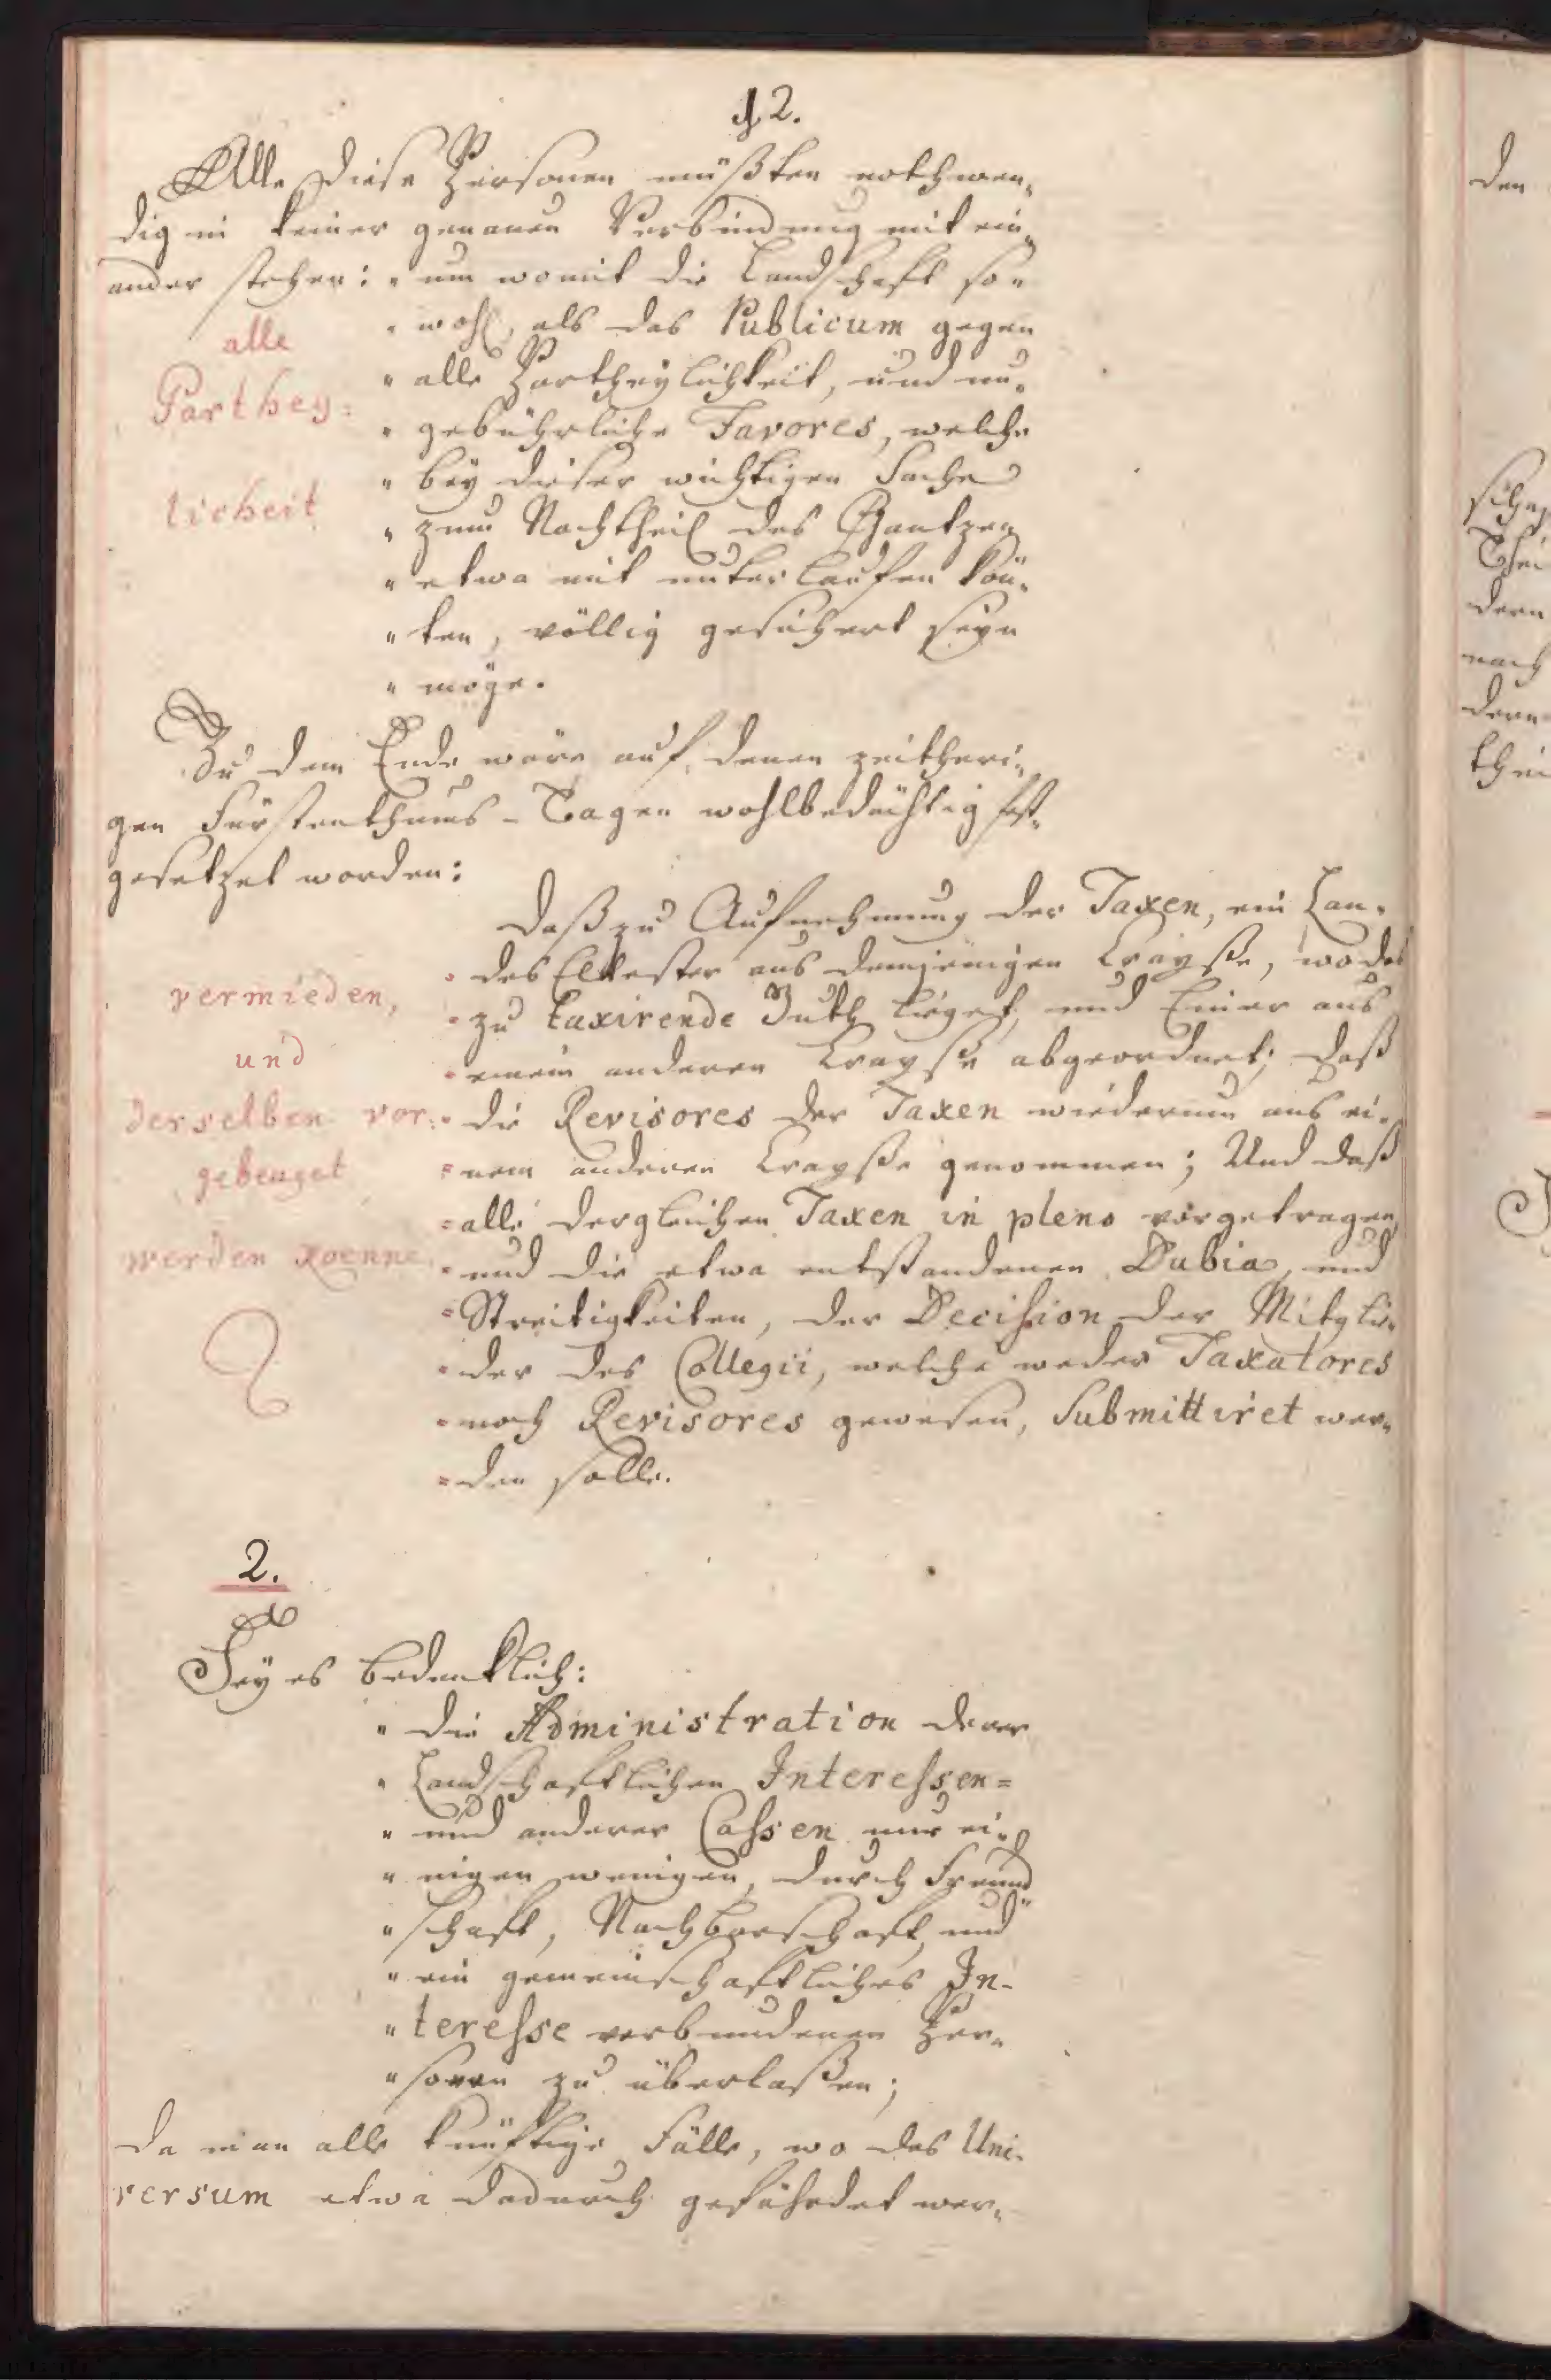 § 2.
Alle diese Personen müßten nothwen„
dig in keiner genauen Verbindung mit ein„
ander stehen: „um womit die Landschaft so„
„wohl, als das Publicum gegen
„alle Partheylichkeit, und un„
„gebührliche Favores, welche
„bey dieser wichtigen Sache
„zum Nachtheil des Gantzen
„etwa mit unter laufen kön„
„ten, völlig gesichert seyn
„möge.
alle
Parthey:
licheit
Zu dem Ende wäre auf denen zeitheri„
gen Fürstenthums-Tagen wohlbedächtig fest„
gesetzet worden:
Daß zu Aufnehmung der Taxen, ein Lan„
„des Elltester aus demjenigen Crayße, wo das
„zu taxirende Guth lieget, und Einer aus
„einem anderen Crayße abgeordnet; daß
„die Revisores der Taxen wiederum aus ei„
„nem anderen Crayße genommen; Und daß
„alle dergleichen Taxen in pleno vorgetragen,
„und die etwa entstandenen Dubia, und
„Streitigkeiten, der Decision der Mitglie„
„der des Collegii, welche weder Taxatores
„noch Revisores gewesen, Submittiret wer„
„den solle.
vermieden,
und
derselben vor:
gebeuget
werden koenne
2.
Sey es bedenklich:
„die Administration derer
„Landschaftlichen Interessen=
„und anderer Cassen nur ei„
„nigen wenigen, durch Freund„
„schaft, Nachbarschaft, und
„ein gemeinschaftliches In-
„teresse verbundenen Per„
„sonen zu überlaßen;
da man alle künftige Fälle, wo das Uni-
versum etwa dadurch gefährdet wer„
den
dern
nach
dern
thei